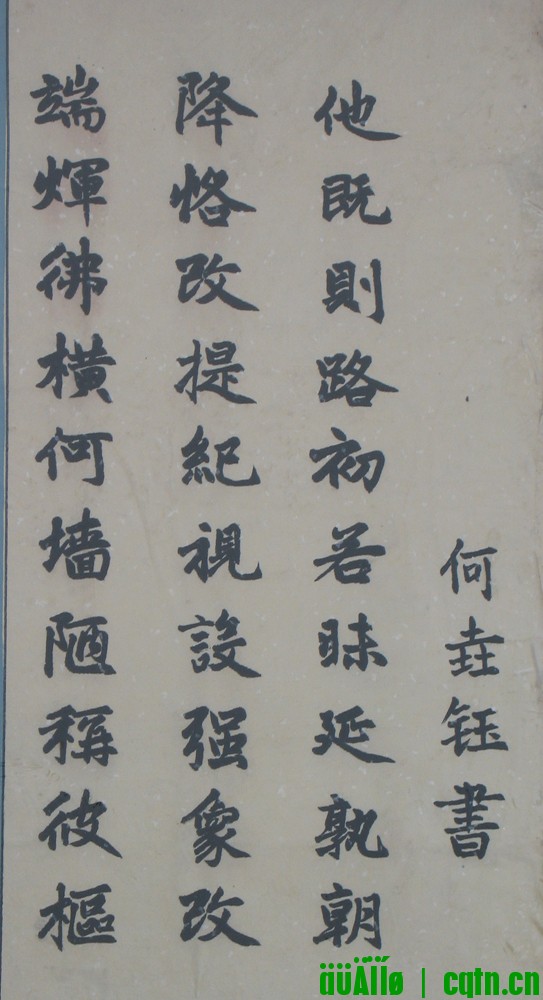 端煇彿横何墙陋稱彼樞
降恪改提紀視設强象改
他既則路初若昧延孰朝
何垚钰書
| cqtn.cn